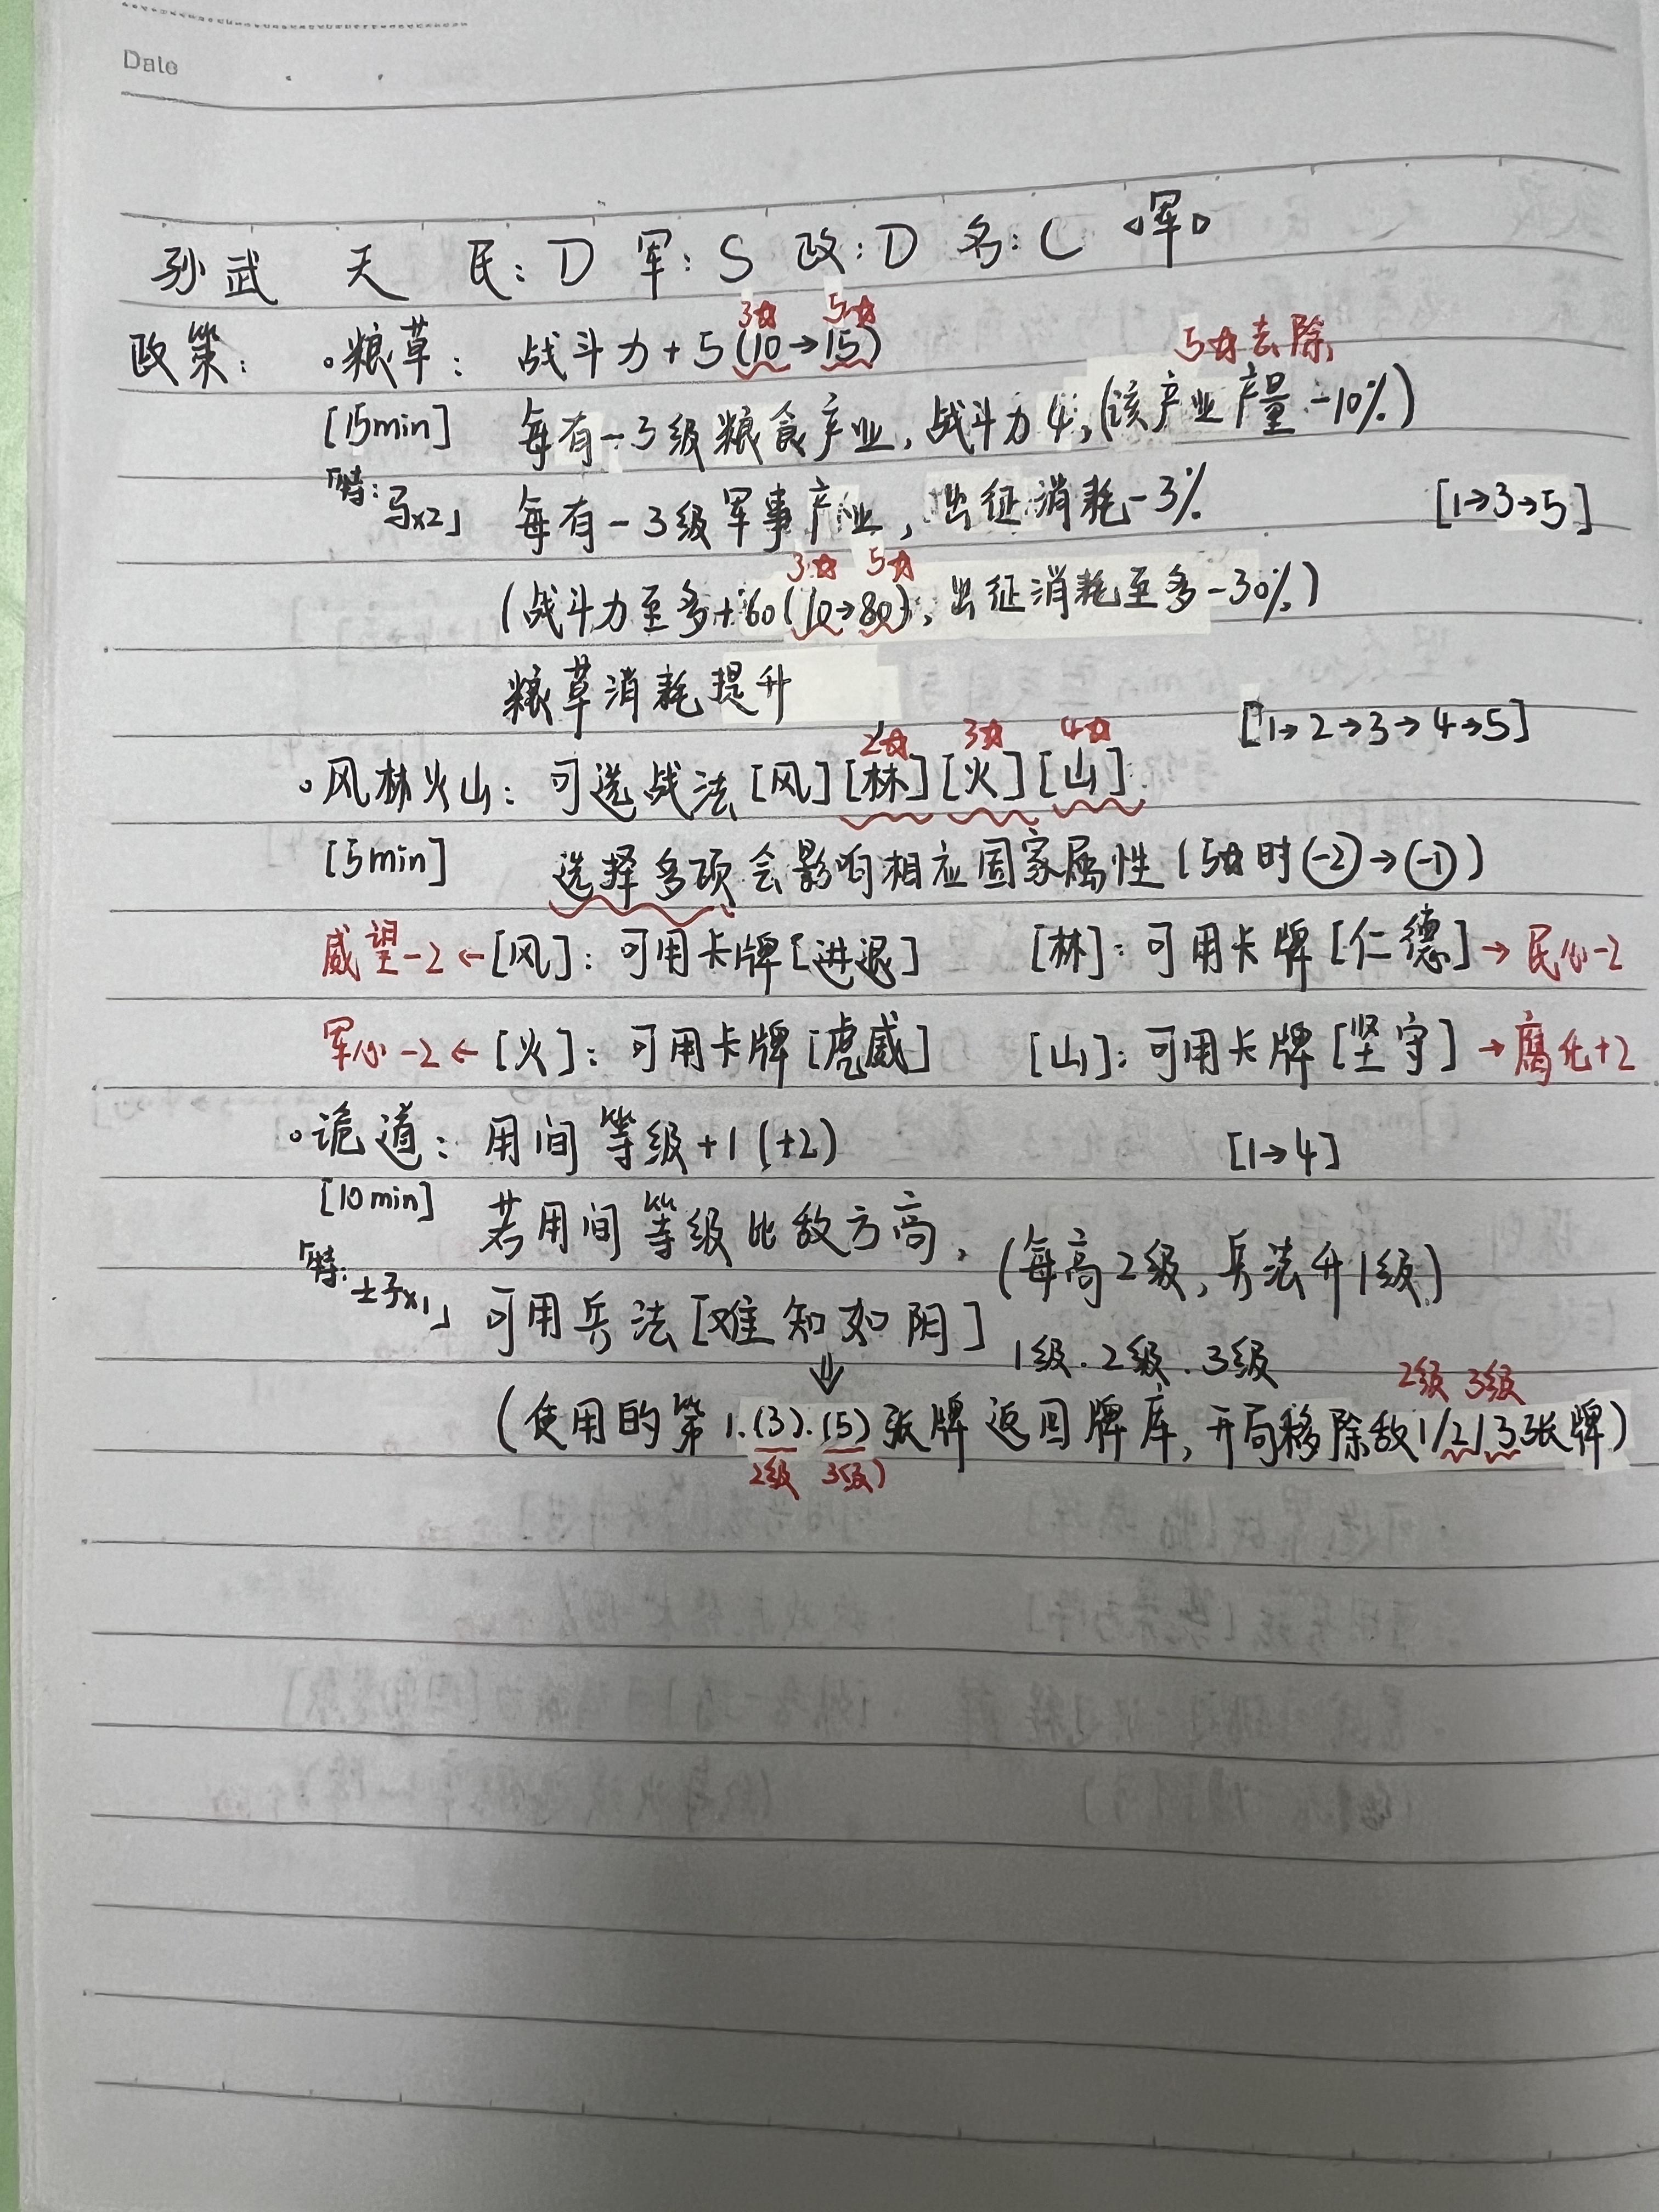 Date
孙武 天 民:D 军:S 政:D 名:C <军>
3☆ 5☆
政策: 。粮草: 战斗力+5(10→15)
5☆去除
[15min] 每有一3级粮食产业,战斗力4,(该产业产量-10%)
「特:马x2」 每有一3级军事产业,出征消耗-3% [1→3→5]
3☆ 5☆
(战斗力至多+60(10→80),出征消耗至多-30%)
粮草消耗提升
[1→2→3→4→5]
2☆ 3☆ 4☆
。风林火山: 可选战法[风][林][火][山]
[5min] 选择多项会影响相应国家属性(5☆时(-2)→(-1))
威望-2←[风]: 可用卡牌[进退] [林]: 可用卡牌[仁德]→民心-2
军心-2←[火]: 可用卡牌[虎威] [山]: 可用卡牌[坚守]→腐化+2
。诡道: 用间等级+1(+2) [1→4]
[10min] 若用间等级比敌方高, (每高2级,兵法升1级)
「特:士子x1」 可用兵法[难知如阴]
1级.2级.3级
⇓
2级 3级
(使用的第1.(3).(5)张牌返回牌库,开局移除敌1/2/3张牌)
2级 3级)